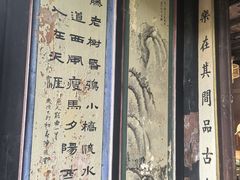 樂在其間品古
藤老樹昏鴉小橋流水
道西風瘦馬夕陽西
人在天涯